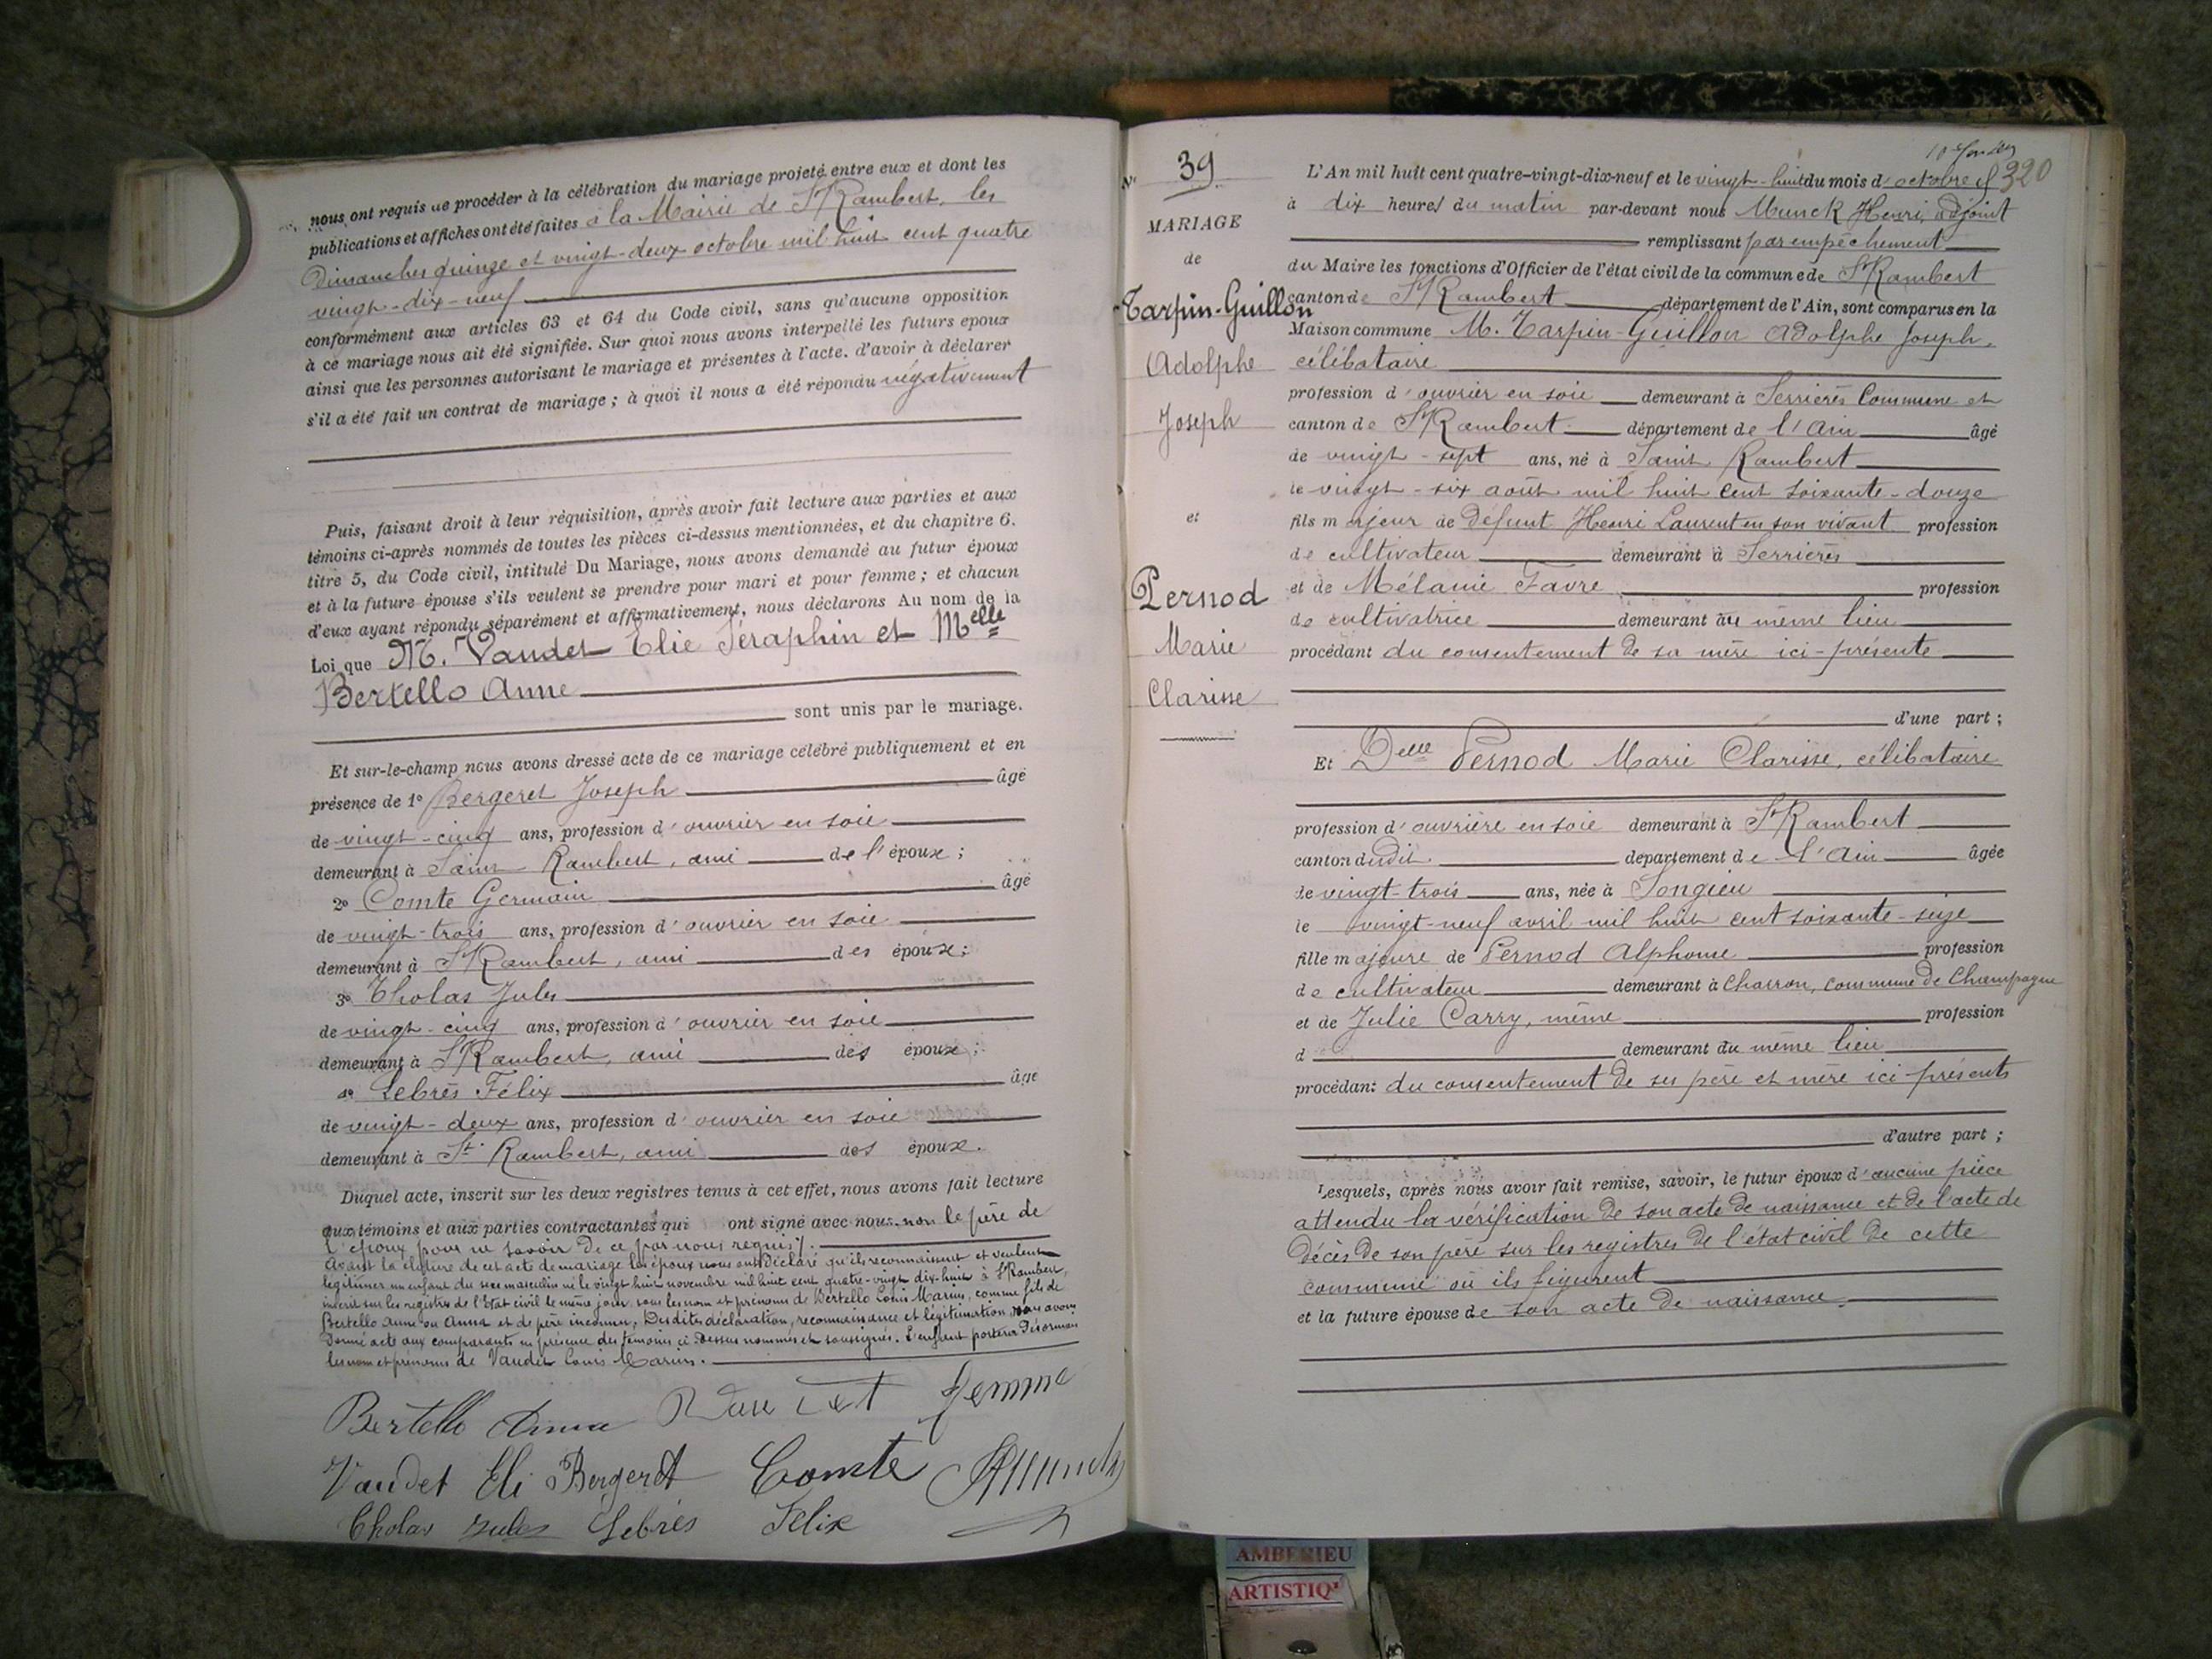 nous ont requis de procéder à la célébration du mariage projeté entre eux et dont les
publications et affiches ont été faites à la Mairie de St Rambert, les
Dimanches quinze et vingt-deux octobre mil huit cent quatre
vingt-dix-neuf
conformément aux articles 63 et 64 du Code civil, sans qu'aucune opposition
à ce mariage nous ait été signifiée. Sur quoi nous avons interpellé les futurs epoux
ainsi que les personnes autorisant le mariage et présentes à l'acte. d'avoir à déclarer
s'il a été fait un contrat de mariage ; à quoi il nous a été répondu négativement
Puis, faisant droit à leur réquisition, après avoir fait lecture aux parties et aux
témoins ci-après nommés de toutes les pièces ci-dessus mentionnées, et du chapitre 6.
titre 5, du Code civil, intitulé Du Mariage, nous avons demandé au futur époux
et à la future épouse s'ils veulent se prendre pour mari et pour femme ; et chacun
d'eux ayant répondu séparément et affirmativement, nous déclarons Au nom de la
Loi que M. Vaudet Elie Séraphin et Melle
Bertello Anne
sont unis par le mariage.
Et sur-le-champ nous avons dressé acte de ce mariage célébré publiquement et en
présence de 1° Bergeret Joseph âgé
de vingt-cinq ans, profession d'ouvrier en soie
demeurant à Saint-Rambert, ami de l'époux ;
2° Comte Germain âgé
de vingt-trois ans, profession d'ouvrier en soie
demeurant à St Rambert, ami des époux ;
3° Tholas Jules
de vingt-cinq ans, profession d'ouvrier en soie
demeurant à St Rambert, ami des époux ;
4° Lebrès Félix âgé
de vingt-deux ans, profession d'ouvrier en soie
demeurant à St Rambert, ami des époux.
Duquel acte, inscrit sur les deux registres tenus à cet effet, nous avons fait lecture
aux témoins et aux parties contractantes qui ont signé avec nous. non le père de
l'époux pour ne savoir de ce par nous requis.
Avant la clôture de cet acte de mariage les époux nous ont déclaré qu'ils reconnaissent et veulent
légitimer un enfant du sexe masculin né le vingt huit novembre mil huit cent quatre-vingt dix-huit à St Rambert,
inscrit sur les registres de l'Etat civil le même jour, sous les nom et prénoms de Bertello Louis Marius, comme fils de
Bertello Anne ou Anna et de père inconnu. Desdites déclaration, reconnaissance et légitimation nous avons
donné acte aux comparants en présence des témoins ci-dessus nommés et soussignés. L'enfant portera désormais
les nom et prénoms de Vaudet Louis Marius.
Bertello Anna Vaudet femme
Vaudet Eli Bergeret Comte
Tholas Jules Lebrès Félix
N° 39
MARIAGE
de
Tarpin-Guillon
Adolphe
Joseph
et
Pernod
Marie
Clarisse
320
L'An mil huit cent quatre-vingt-dix-neuf et le vingt-huit du mois d'octobre
à dix heures du matin par-devant nous Munck Henri, adjoint
remplissant par empêchement
du Maire les fonctions d'Officier de l'état civil de la commune de St Rambert
canton de St Rambert département de l'Ain, sont comparus en la
Maison commune M. Tarpin-Guillon Adolphe Joseph,
célibataire
profession d'ouvrier en soie demeurant à Serrières Commune et
canton de St Rambert département de l'Ain âgé
de vingt-sept ans, né à Saint Rambert
le vingt-six août mil huit cent soixante-douze
fils majeur de défunt Henri Laurent en son vivant profession
de cultivateur demeurant à Serrières
et de Mélanie Favre profession
de cultivatrice demeurant au même lieu
procédant du consentement de sa mère ici-présente
d'une part ;
Et Delle Pernod Marie Clarisse, célibataire
profession d'ouvrière en soie demeurant à St Rambert
canton dudit département de l'Ain âgée
de vingt-trois ans, née à Songieu
le vingt-neuf avril mil huit cent soixante-seize
fille majeure de Pernod Alphonse profession
de cultivateur demeurant à Charron, commune de Champagne
et de Julie Carry, même profession
d demeurant au même lieu
procédant du consentement de ses père et mère ici présents
d'autre part ;
Lesquels, après nous avoir fait remise, savoir, le futur époux d'aucune pièce
attendu la vérification de son acte de naissance et de l'acte de
décès de son père sur les registres de l'état civil de cette
commune où ils figurent
et la future épouse de son acte de naissance.
AMBERIEU
ARTISTIQ